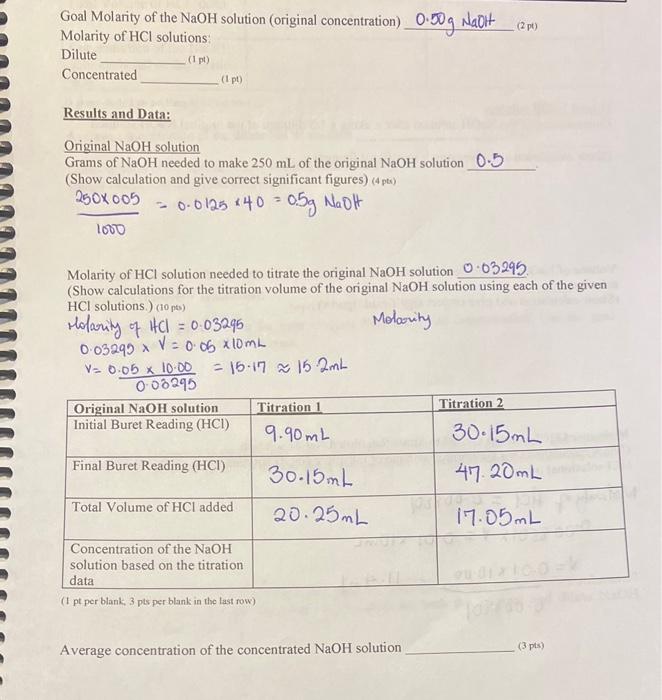 Goal Molarity of the NaOH solution (original concentration) 0.50g NaOH (2 pt)
Molarity of HCl solutions:
Dilute (1 pt)
Concentrated (1 pt)
Results and Data:
Original NaOH solution
Grams of NaOH needed to make 250 mL of the original NaOH solution 0.5
(Show calculation and give correct significant figures) (4 pts)
250x005 = 0.0125 x40 = 0.5g NaOH
1000
Molarity of HCl solution needed to titrate the original NaOH solution 0.03295
(Show calculations for the titration volume of the original NaOH solution using each of the given
HCl solutions.) (10 pts)
Molarity of HCl = 0.03295 Molarity
0.03295 x V = 0.05 x10mL
V= 0.05 x 10.00 = 15.17 ≈ 15.2mL
0.03295
Original NaOH solution Titration 1 Titration 2
Initial Buret Reading (HCl) 9.90mL 30.15mL
Final Buret Reading (HCl) 30.15mL 47.20mL
Total Volume of HCl added 20.25mL 17.05mL
Concentration of the NaOH
solution based on the titration
data
(1 pt per blank, 3 pts per blank in the last row)
Average concentration of the concentrated NaOH solution (3 pts)